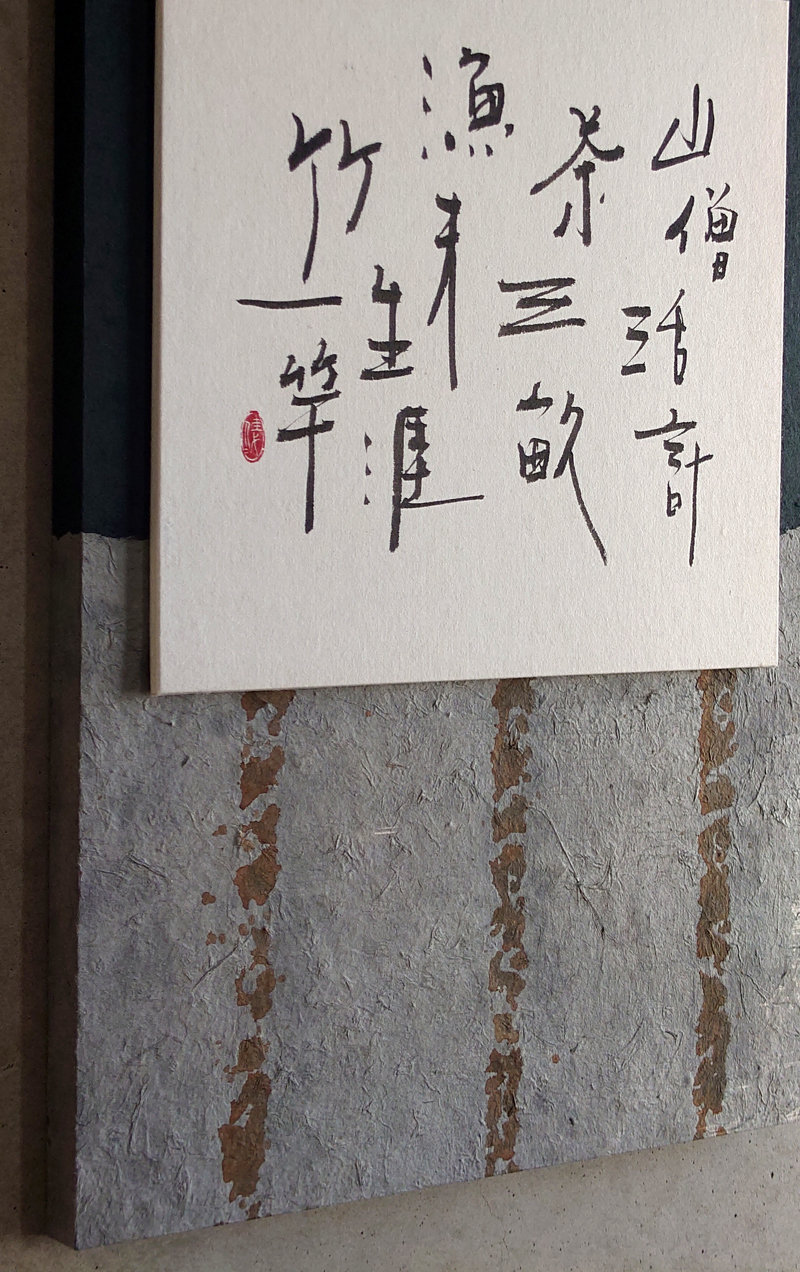 山僧活計
茶三畝
漁夫生涯
竹一竿